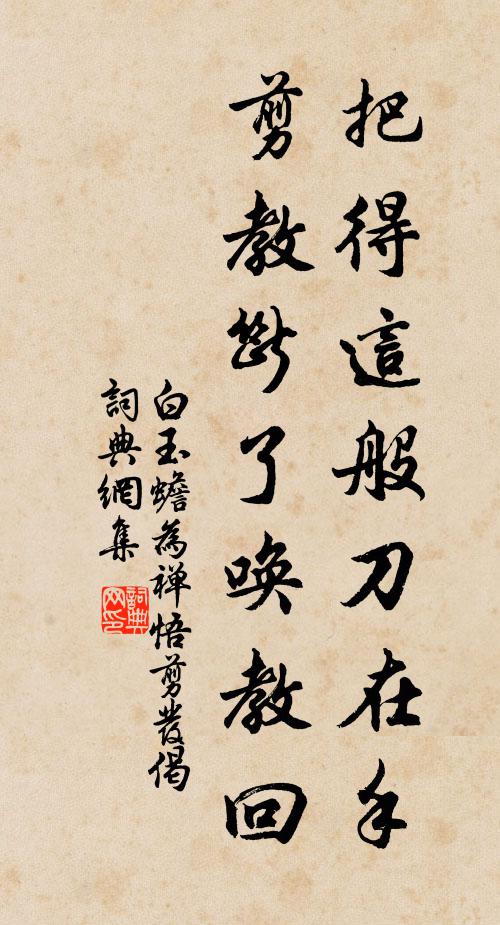 把得這般刀在手
剪教斷了喚教回
白玉蟾為禅悟剪發偈
詞典網集
詞典
网印